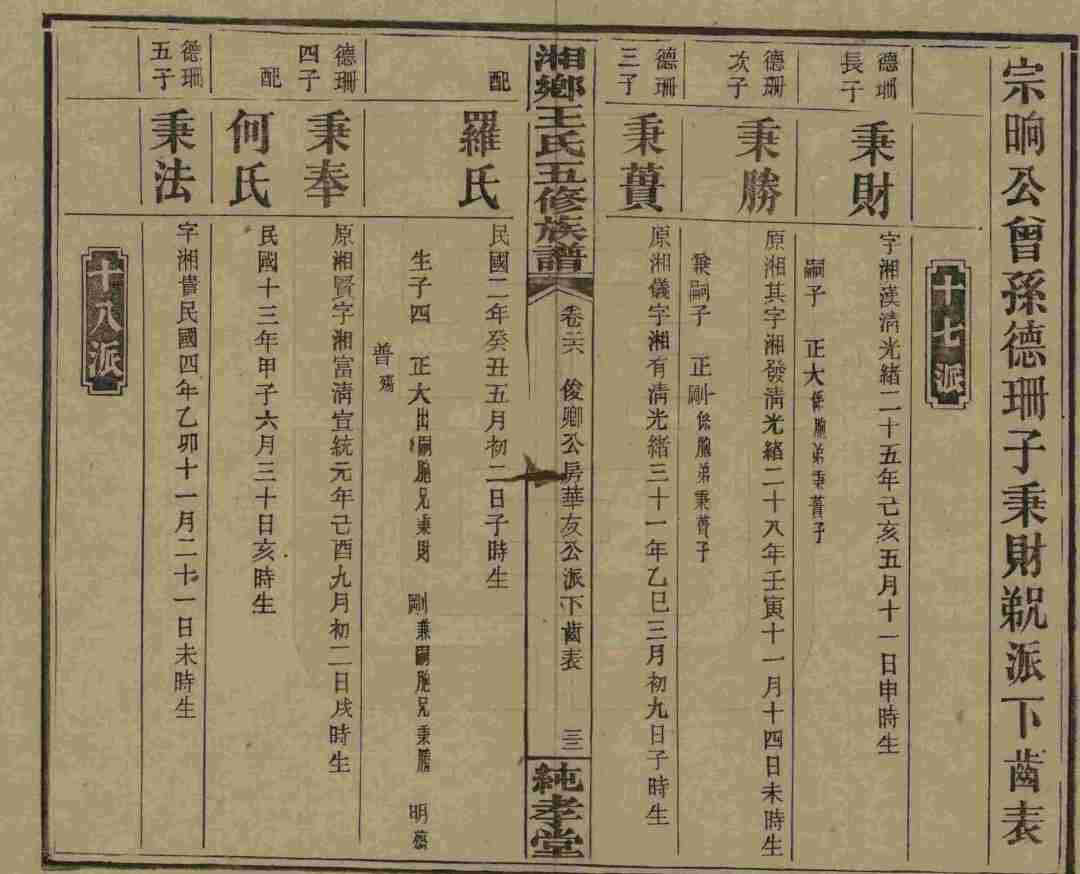 宗晌公曾孫德珊子秉財㲽派下齒表
十七派
德珊
長子
秉財
字湘漢清光緒二十五年己亥五月十一日申時生
嗣子 正大係胞弟秉蕢子
德珊
次子
秉勝
原湘其字湘發清光緒二十八年壬寅十一月十四日未時生
兼嗣子 正剛係胞弟秉蕢子
德珊
三子
秉蕢
原湘儀字湘有清光緒三十一年乙巳三月初九日子時生
湘鄉王氏五修族譜
卷六 俊卿公房華友公派下齒表 三
純孝堂
配
羅氏
民國二年癸丑五月初二日子時生
生子四 正大出嗣胞兄秉財 剛兼嗣胞兄秉勝 明德
普殤
德珊
四子
秉奉
原湘賢字湘富清宣統元年己酉九月初二日戌時生
配
何氏
民國十三年甲子六月三十日亥時生
德珊
五子
秉法
字湘貴民國四年乙卯十一月二十一日未時生
十八派